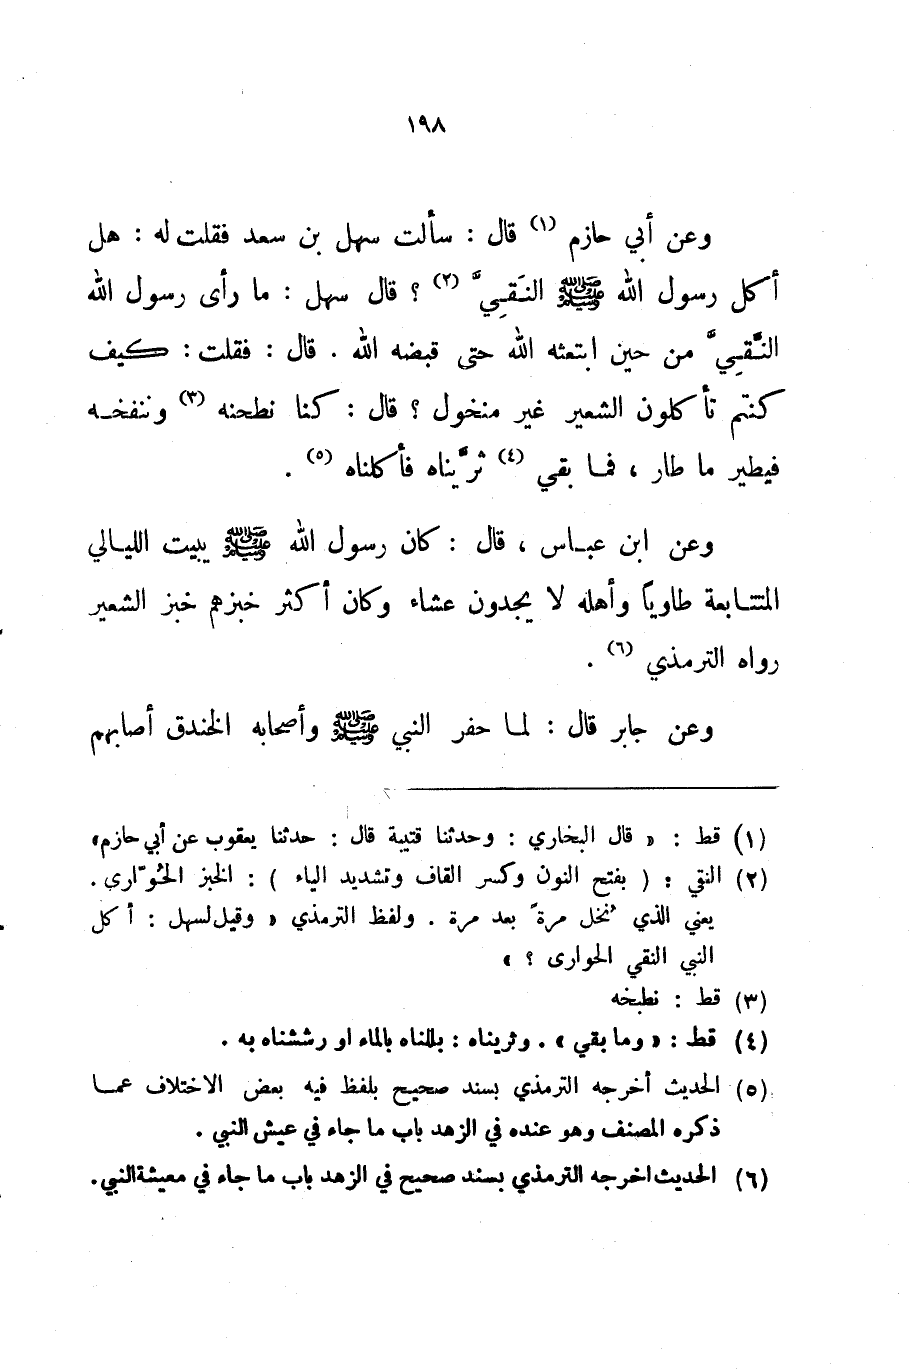 ١٩٨
وعن أبي حازم (١) قال : سألت سهل بن سعد فقلت له : هل
أكل رسول الله ﷺ النَقِيَّ (٢) ؟ قال سهل : ما رأى رسول الله
النَّقِيَّ من حين ابتعثه الله حتى قبضه الله . قال : فقلت : كيف
كنتم تأكلون الشعير غير منخول ؟ قال : كنا نطحنه (٣) وننفخه
فيطير ما طار ، فما بقي (٤) ثرَّيناه فأكلناه (٥) .
وعن ابن عباس ، قال : كان رسول الله ﷺ يبيت الليالي
المتتابعة طاوياً وأهله لا يجدون عشاء وكان أكثر خبزهم خبز الشعير
رواه الترمذي (٦) .
وعن جابر قال : لما حفر النبي ﷺ وأصحابه الخندق أصابهم
(١) قط : « قال البخاري : وحدثنا قتيبة قال : حدثنا يعقوب عن أبي حازم»
(٢) النقي : ( بفتح النون وكسر القاف وتشديد الياء ) : الخبز الحُوَّارى .
يعني الذي نُخل مرةً بعد مرة . ولفظ الترمذي « وقيل لسهل : أكل
النبي النقي الحوارى ؟ »
(٣) قط : نطبخه
(٤) قط : « وما بقي » . وثريناه : بللناه بالماء او رششناه به .
(٥) الحديث أخرجه الترمذي بسند صحيح بلفظ فيه بعض الاختلاف عما
ذكره المصنف وهو عنده في الزهد باب ما جاء في عيش النبي .
(٦) الحديث اخرجه الترمذي بسند صحيح في الزهد باب ما جاء في معيشة النبي .